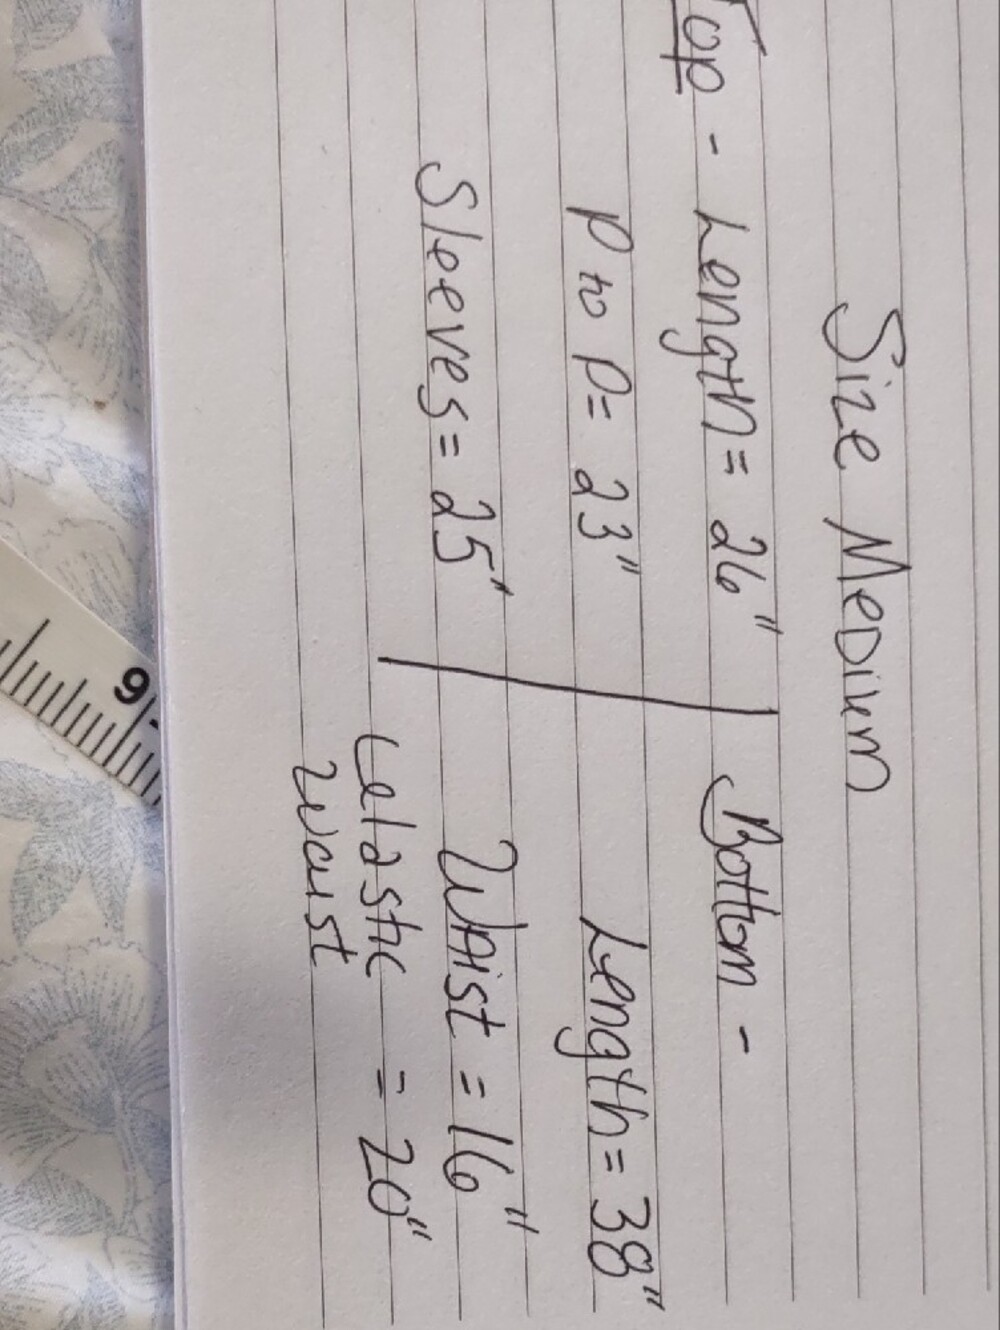 Size Medium
Top - Length = 26" Bottom -
P to P = 23" Length = 38"
Sleeves = 25" Waist = 16"
elastic = 20"
waist
9